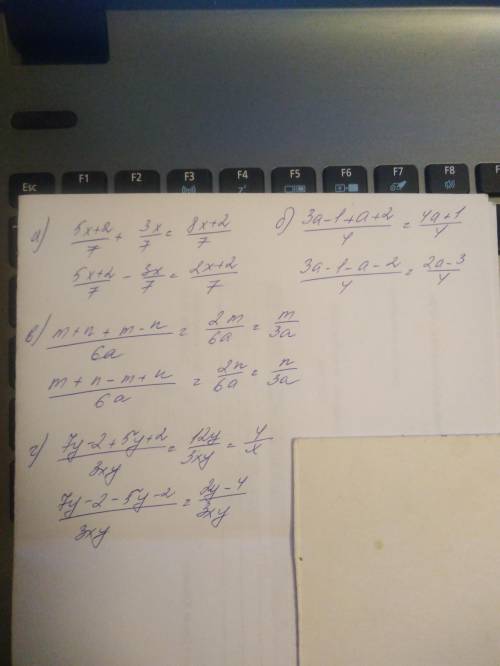 Esc F1 F2 F3 F4 F5 F6 F7 F8
а) (5x+2)/7 + 3x/7 = (8x+2)/7
(5x+2)/7 - 3x/7 = (2x+2)/7
б) (3a-1+a+2)/4 = (4a+1)/4
(3a-1-a-2)/4 = (2a-3)/4
в) (m+n+m-n)/6a = 2m/6a = m/3a
(m+n-m+n)/6a = 2n/6a = n/3a
г) (7y-2+5y+2)/3xy = 12y/3xy = 4/x
(7y-2-5y-2)/3xy = (2y-4)/3xy